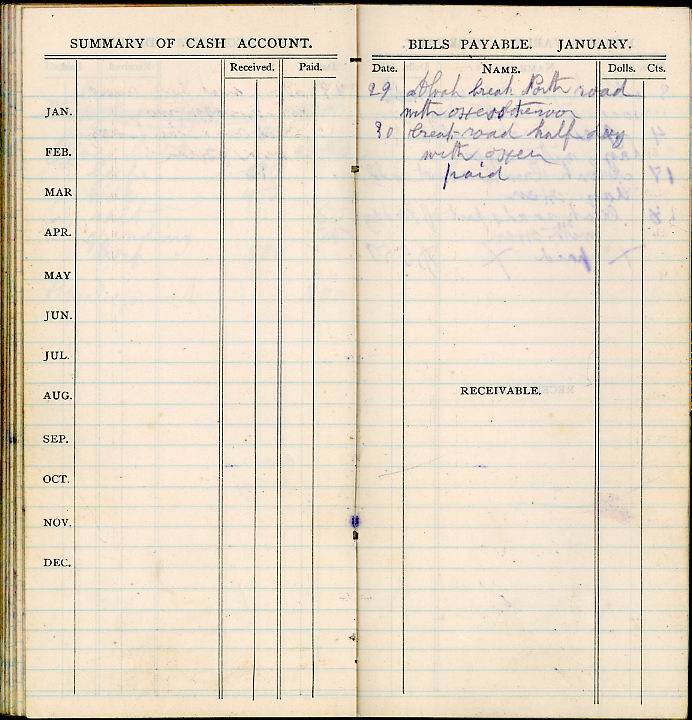 SUMMARY OF CASH ACCOUNT.
Received. Paid.
JAN.
FEB.
MAR
APR.
MAY
JUN.
JUL.
AUG.
SEP.
OCT.
NOV.
DEC.
BILLS PAYABLE. JANUARY.
Date. NAME. Dolls. Cts.
29 break road
with oxen
30 break road half day
with oxen
paid
RECEIVABLE.